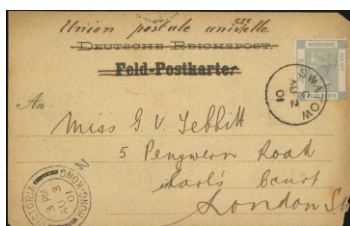 Union postale universelle
DEUTSCHE REICHSPOST.
Feld-Postkarte
HONG KONG
SWATOW
C
AU 2
01
An
Miss G. V. Tebbitt
5 Pengwern Road
Earl's Court
London SW
VICTORIA HONG-KONG
3 PM
AU 3
01